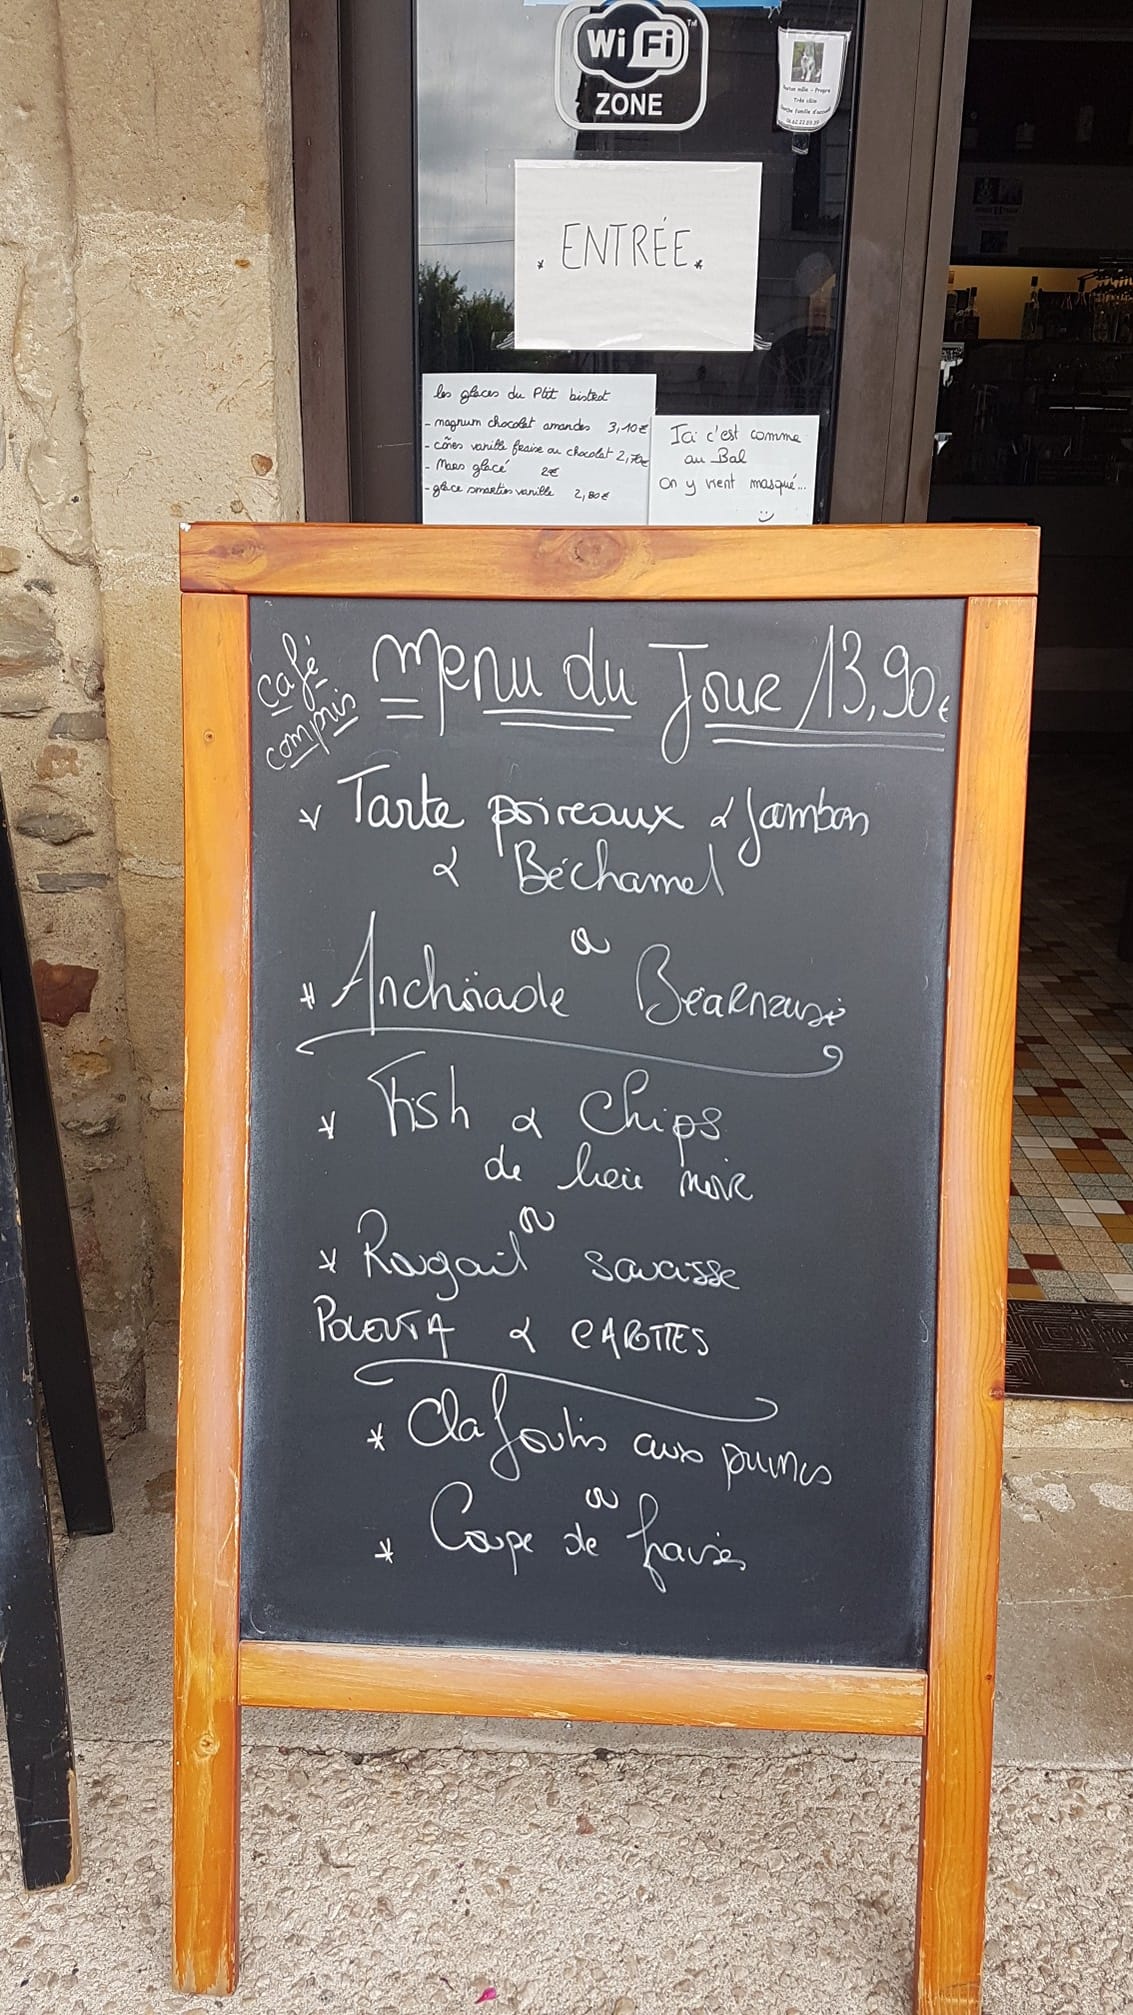 WiFi
ZONE
Très câlin
. ENTRÉE.
les glaces du P'tit bistrot
- magnum chocolat amandes 3,10€
- cônes vanille fraise ou chocolat 2,70€
- Mars glacé 2€
- glace smarties vanille 2,80€
Ici c'est comme
au Bal
on y vient masqué...
Café
compris
Menu du Jour 13,90€
* Tarte poireaux & Jambon
& Béchamel
ou
* Anchoïade Béarnaise
* Fish & Chips
de lieu noir
ou
* Rougail saucisse
POLENTA & CAROTTES
* Clafoutis aux prunes
ou
* Coupe de fraises